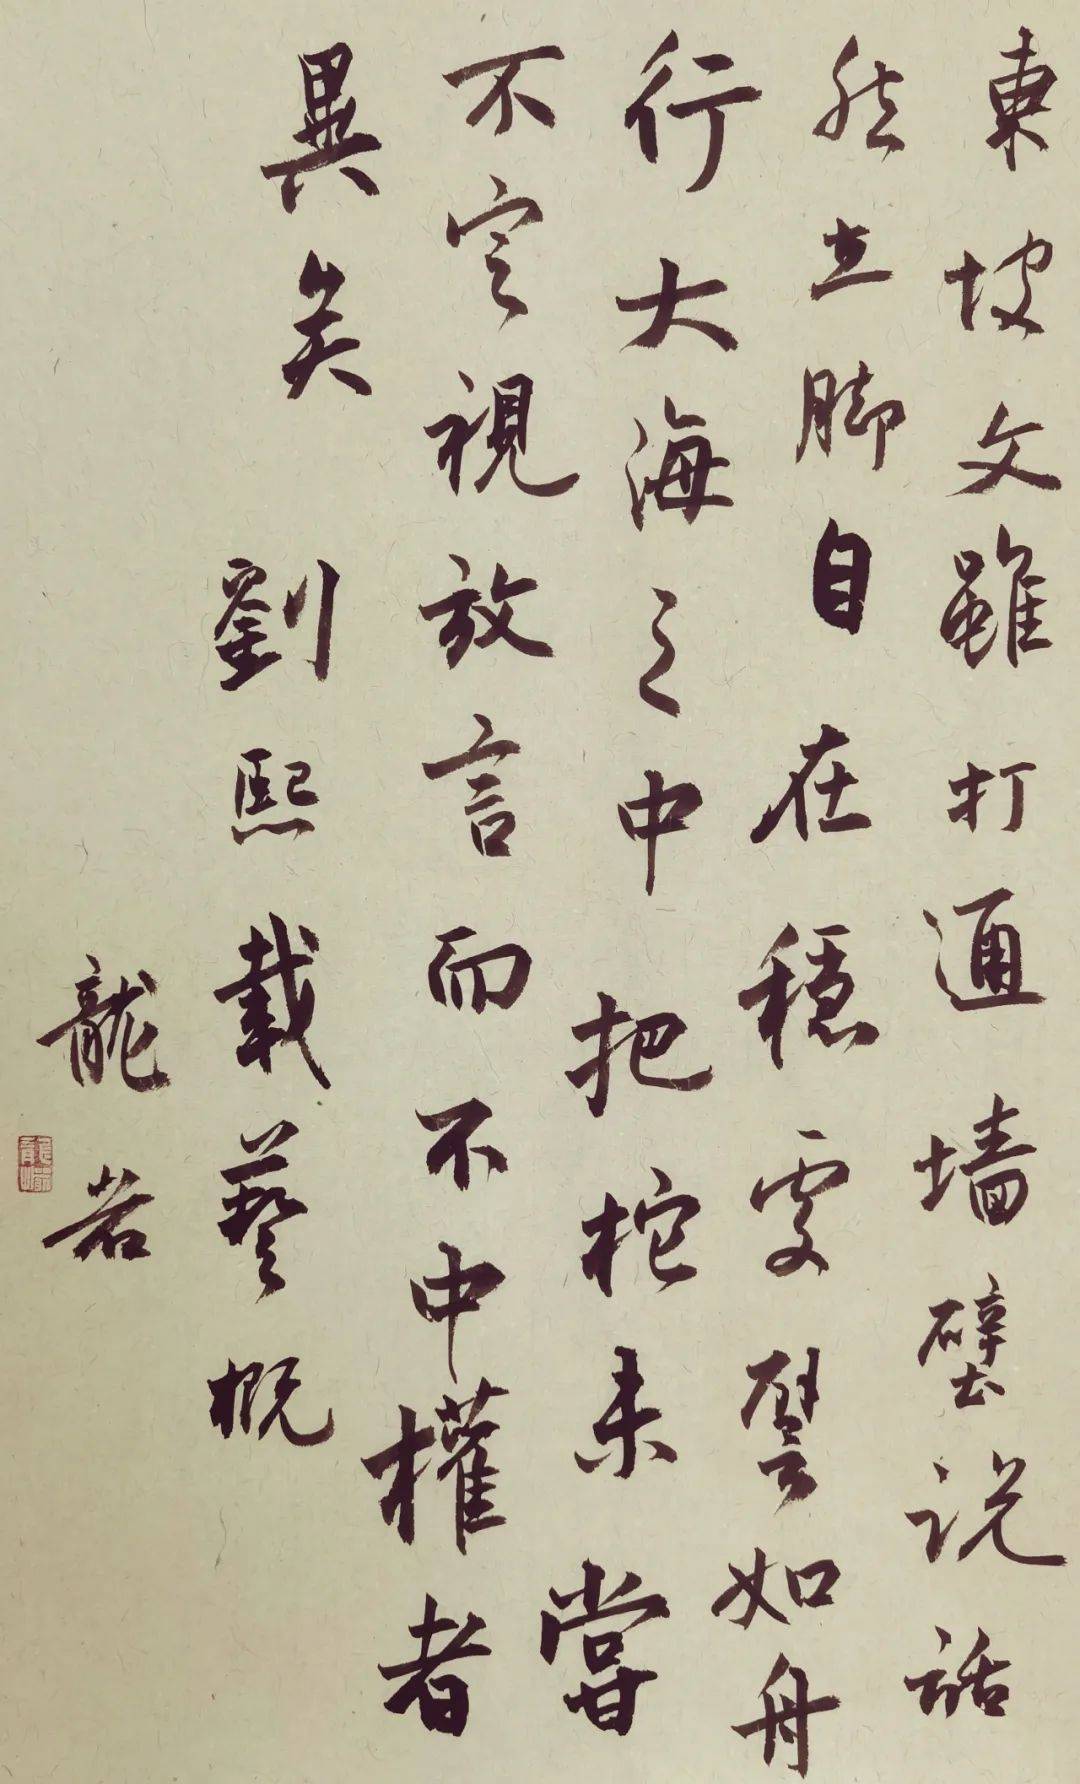 東坡文雖打通墙壁说話
然立脚自在穩處譬如舟
行大海之中把柁未嘗
不定視放言而不中權者
異矣 劉熙載藝概
龍岩